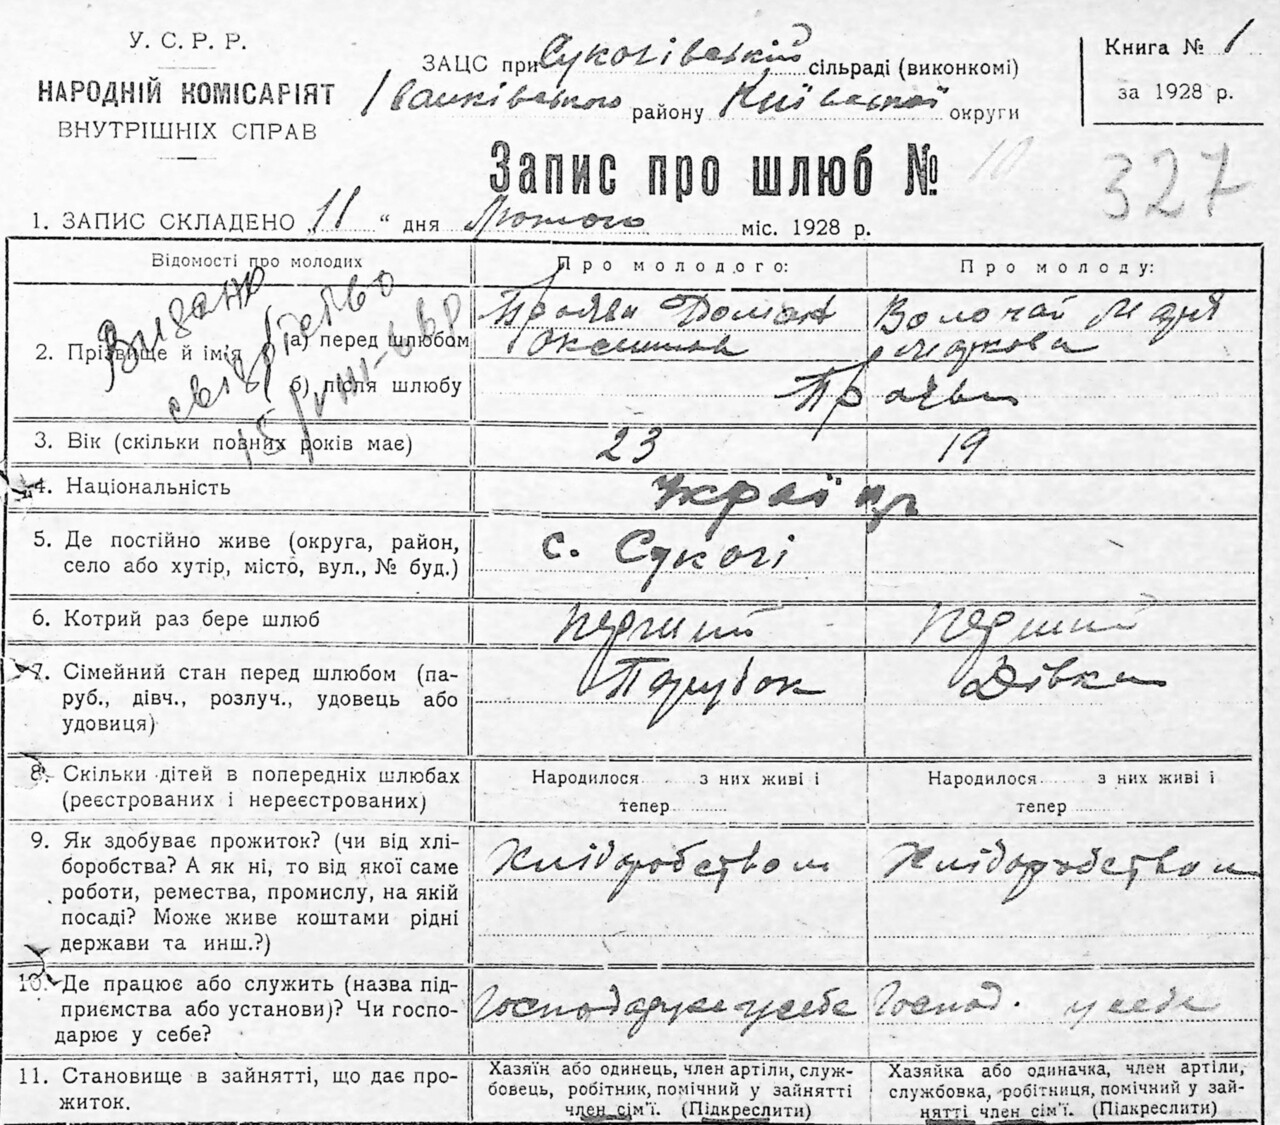 У. С. Р. Р.
НАРОДНІЙ КОМІСАРІЯТ
ВНУТРІШНІХ СПРАВ
ЗАЦС при Сукачівській сільраді (виконкомі)
Іванківського району Київської округи
Книга № 1
за 1928 р.
Запис про шлюб № 10
327
1. ЗАПИС СКЛАДЕНО 11 “ дня Лютого міс. 1928 р.
Відомості про молодих
Про молодого:
Про молоду:
Видано
свідоцтво
2. Прізвище й імя
а) перед шлюбом
б) після шлюбу
Волочай
3. Вік (скільки повних років має)
23
19
4. Національність
Україн
5. Де постійно живе (округа, район,
село або хутір, місто, вул., № буд.)
с. Сукачі
6. Котрий раз бере шлюб
перший
перший
7. Сімейний стан перед шлюбом (па-
руб., дівч., розлуч., удовець або
удовиця)
Парубок
Дівка
8. Скільки дітей в попередніх шлюбах
(реєстрованих і нереєстрованих)
Народилося з них живі і
тепер
Народилося з них живі і
тепер
9. Як здобуває прожиток? (чи від хлі-
боробства? А як ні, то від якої саме
роботи, ремества, промислу, на якій
посаді? Може живе коштами рідні
держави та инш.?)
Хліборобством
Хліборобством
10. Де працює або служить (назва під-
приємства або установи)? Чи госпо-
дарює у себе?
Господарює у себе
Господ. у себе
11. Становище в зайнятті, що дає про-
житок.
Хазяїн або одинець, член артілі, служ-
бовець, робітник, помічний у зайнятті
член сім'ї. (Підкреслити)
Хазяйка або одиначка, член артілі,
службовка, робітниця, помічний у зай-
нятті член сім'ї. (Підкреслити)